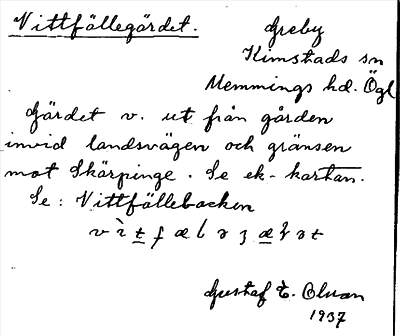 Vittfällegärdet.
Greby
Kimstads sn
Memmings hd. Ögl
Gärdet v. ut från gården
invid landsvägen och gränsen
mot Skärpinge. Se ek-kartan.
Se: Vittfällebacken
Gustaf E. Olsson
1937